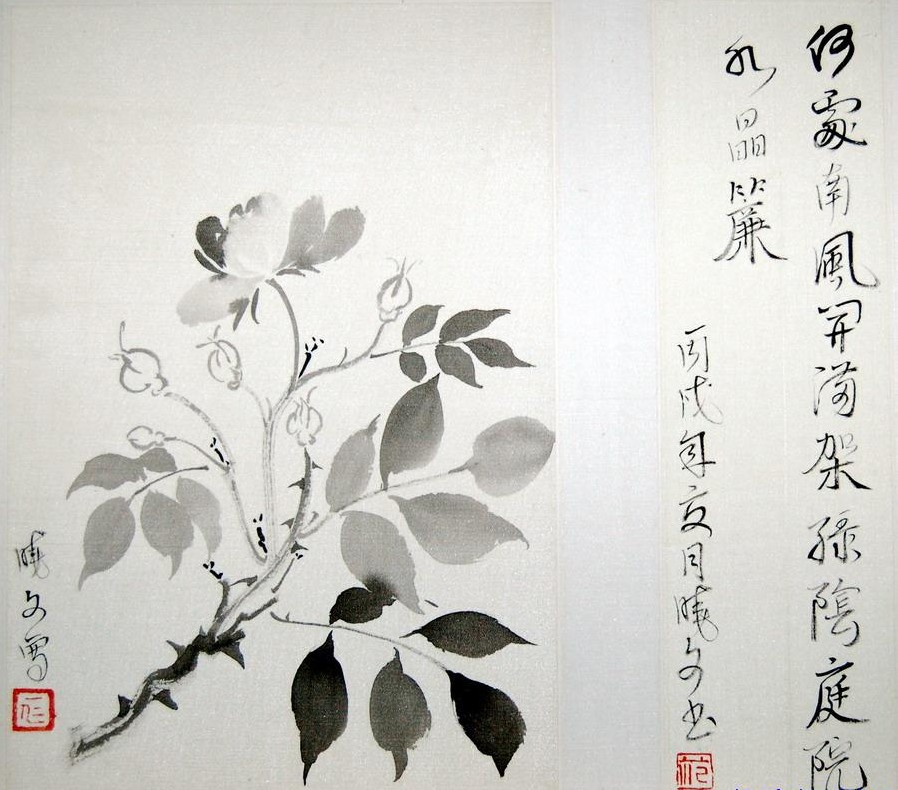 何處南風開滿架綠陰庭院
水晶簾
丙戌年夏月曉文书
曉文寫